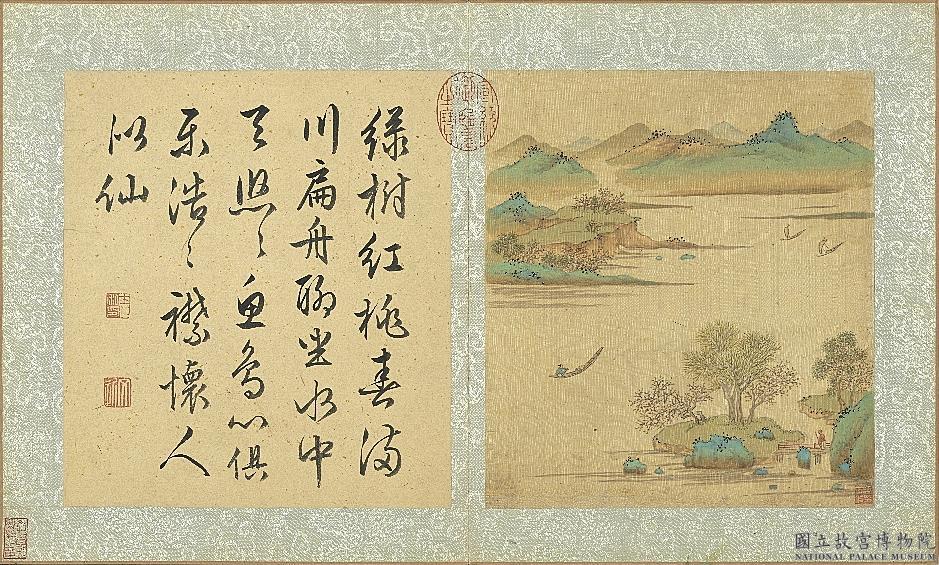 綠樹紅桃春滿
川扁舟聊坐水中
天熙々魚鳥心俱
樂浩々襟懷人
似仙
國立故宮博物院
NATIONAL PALACE MUSEUM